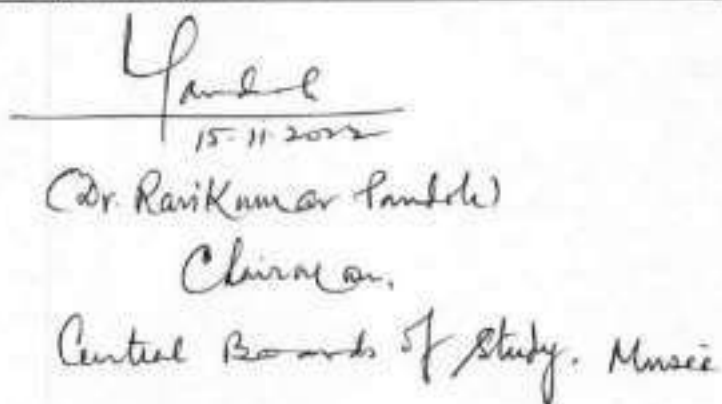 15-11-2022
(Dr. RaviKumar Pandole)
Chairman.
Central Boards of Study. Music